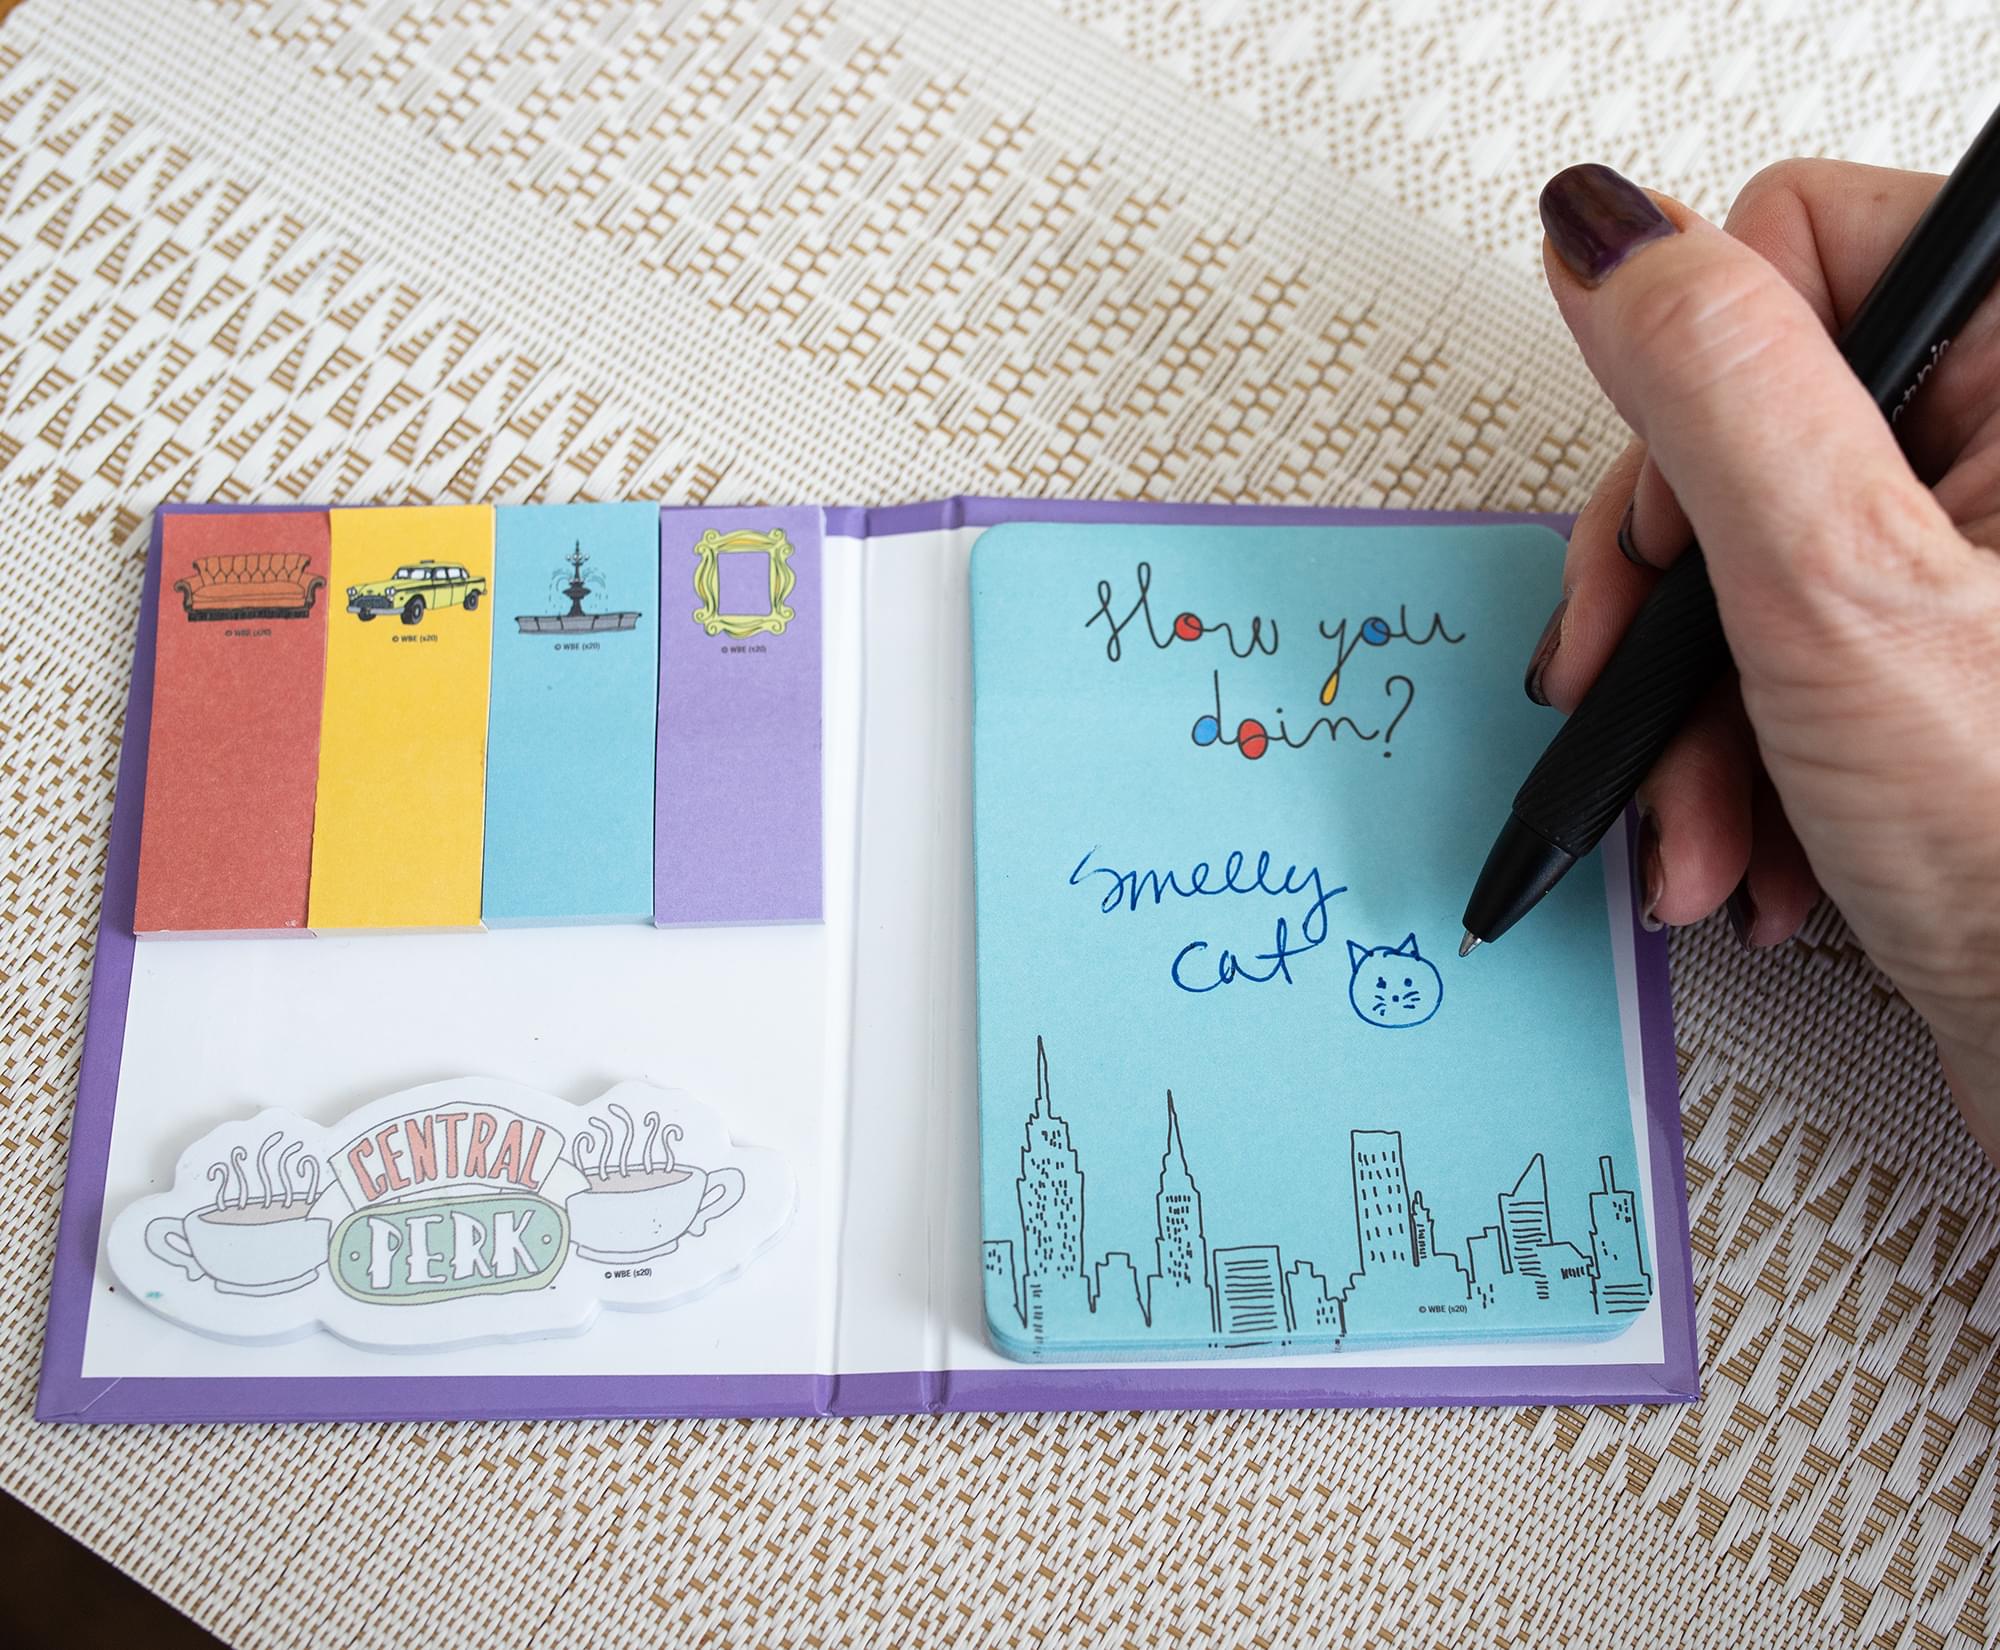 © WBE (s20)
© WBE (s20)
© WBE (s20)
© WBE (s20)
CENTRAL
PERK
™
© WBE (s20)
How you
doin?
Smelly
cat
© WBE (s20)